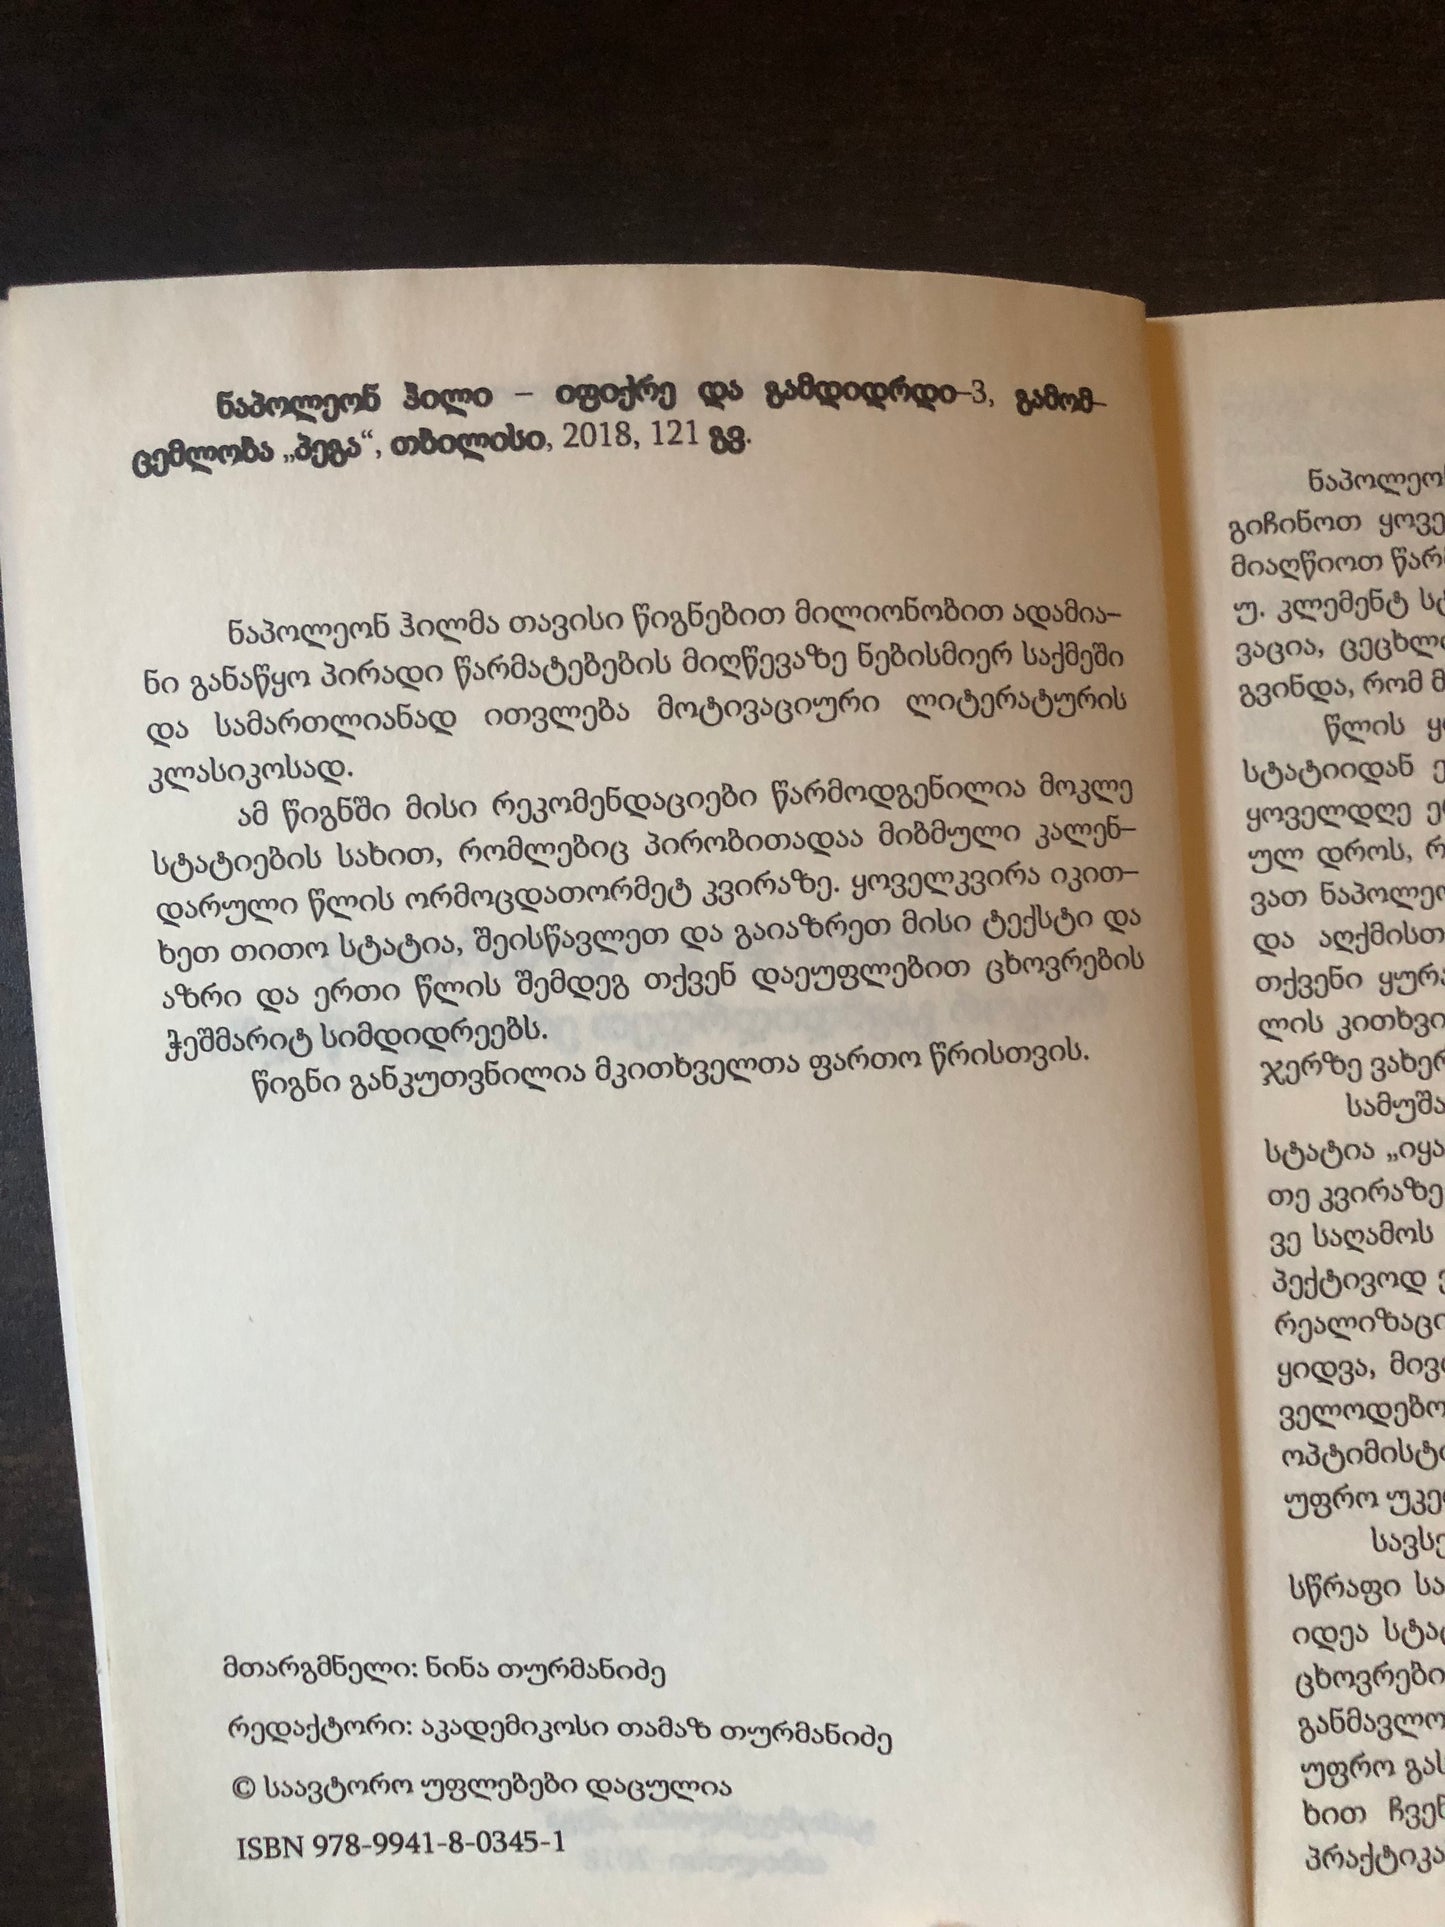 ნაპოლეონ ჰილი – იფიქრე და გამდიდრდი–3, გამომ–
ცემლობა „პეგა“, თბილისი, 2018, 121 გვ.
ნაპოლეონ ჰილმა თავისი წიგნებით მილიონობით ადამია–
ნი განაწყო პირადი წარმატებების მიღწევაზე ნებისმიერ საქმეში
და სამართლიანად ითვლება მოტივაციური ლიტერატურის
კლასიკოსად.
ამ წიგნში მისი რეკომენდაციები წარმოდგენილია მოკლე
სტატიების სახით, რომლებიც პირობითადაა მიბმული კალენ–
დარული წლის ორმოცდათორმეტ კვირაზე. ყოველკვირა იკით–
ხეთ თითო სტატია, შეისწავლეთ და გაიაზრეთ მისი ტექსტი და
აზრი და ერთი წლის შემდეგ თქვენ დაეუფლებით ცხოვრების
ჭეშმარიტ სიმდიდრეებს.
წიგნი განკუთვნილია მკითხველთა ფართო წრისთვის.
მთარგმნელი: ნინა თურმანიძე
რედაქტორი: აკადემიკოსი თამაზ თურმანიძე
© საავტორო უფლებები დაცულია
ISBN 978-9941-8-0345-1
გიჩინოთ
მიაღწიოთ
უ. კლემენტ
ვაცია,
გვინდა, რომ
წლის
სტატიიდან
ყოველდღე
ულ დროს,
ვათ
და აღქმისთ
თქვენი
ლის
ჯერზე
სტატია
თე კვირაზე
ვე საღამოს
პექტივოდ
ყიდვა,
უფრო
სწრაფი
იდეა
უფრო
ხით